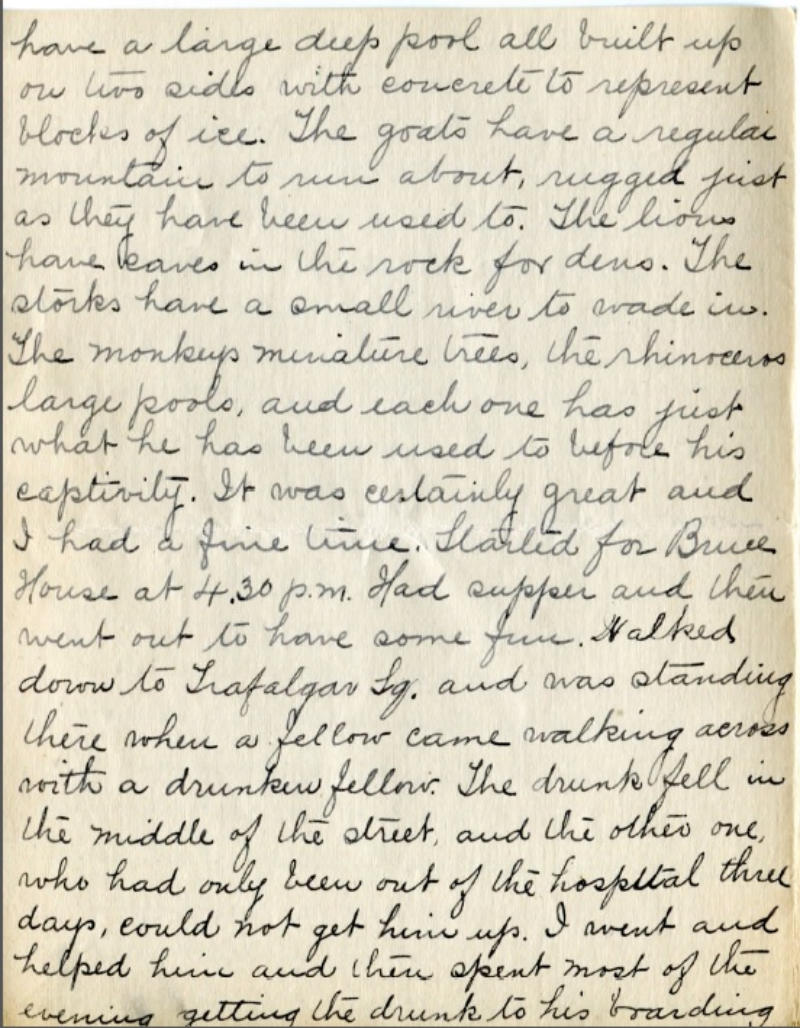 have a large deep pool all built up
on two sides with concrete to represent
blocks of ice. The goats have a regular
mountain to run about, rugged just
as they have been used to. The lions
have caves in the rock for dens. The
storks have a small river to wade in.
The monkeys miniature trees, the rhinoceros
large pools, and each one has just
what he has been used to before his
captivity. It was certainly great and
I had a fine time. Started for Bruce
House at 4.30 p.m. Had supper and then
went out to have some fun. Walked
down to Trafalgar Sq. and was standing
there when a fellow came walking across
with a drunken fellow. The drunk fell in
the middle of the street, and the other one,
who had only been out of the hospital three
days, could not get him up. I went and
helped him and then spent most of the
evening getting the drunk to his boarding